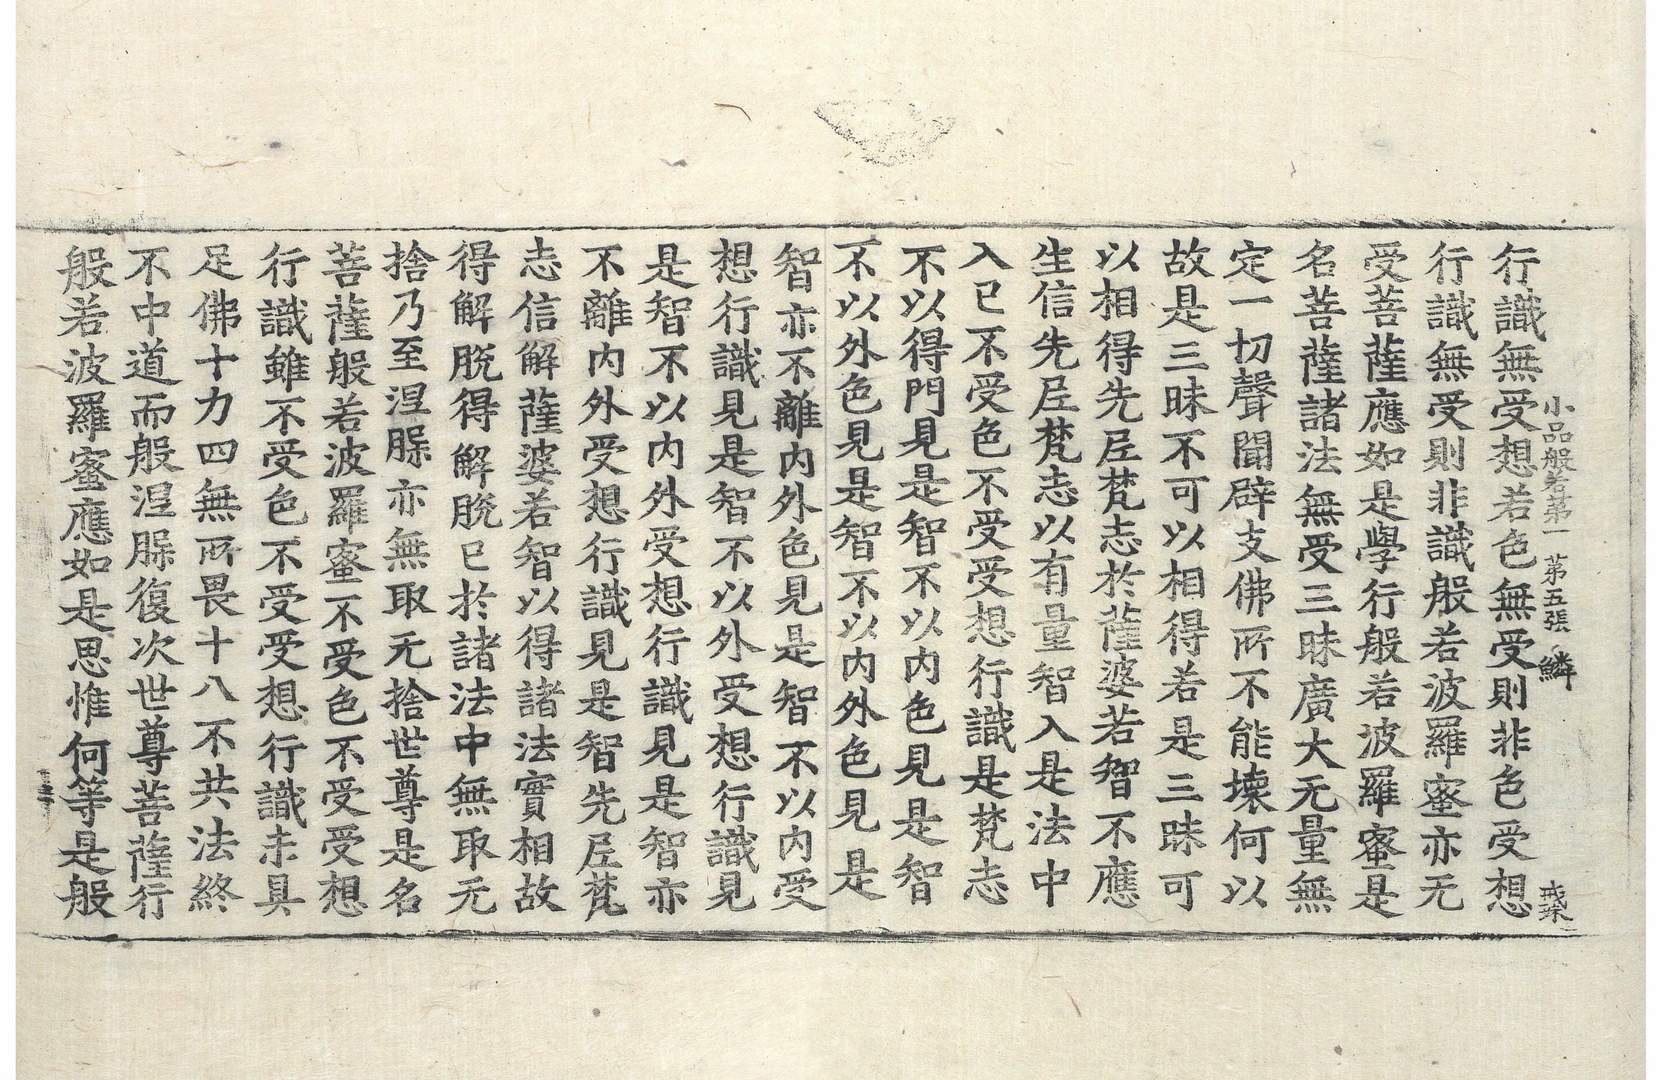 小品般若第一　第五張　鱗　戒柒
行識無受想若色無受則非色受想
行識無受則非識般若波羅蜜亦无
受菩薩應如是學行般若波羅蜜是
名菩薩諸法無受三昧廣大无量無
定一切聲聞辟支佛所不能壞何以
故是三昧不可以相得若是三昧可
以相得先尼梵志於薩婆若智不應
生信先尼梵志以有量智入是法中
入已不受色不受受想行識是梵志
不以得門見是智不以内色見是智
不以外色見是智不以内外色見是
智亦不離内外色見是智不以内受
想行識見是智不以外受想行識見
是智不以内外受想行識見是智亦
不離内外受想行識見是智先尼梵
志信解薩婆若智以得諸法實相故
得解脫得解脫已於諸法中無取无
捨乃至涅槃亦無取无捨世尊是名
菩薩般若波羅蜜不受色不受受想
行識雖不受色不受受想行識未具
足佛十力四無所畏十八不共法終
不中道而般涅槃復次世尊菩薩行
般若波羅蜜應如是思惟何等是般